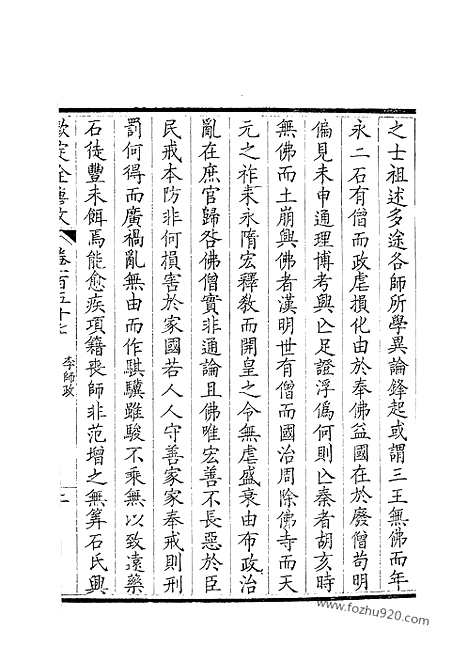 之士祖述多途各師所學異論鋒起或謂三王無佛而年
永二石有僧而政虐損化由於奉佛益國在於廢僧苟明
偏見未申通理博考興亾足證浮偽何則亾秦者胡亥時
無佛而土崩興佛者漢明世有僧而國治周除佛寺而天
元之祚未永隋宏釋教而開皇之令無虐盛衰由布政治
亂在庶官歸咎佛僧實非通論且佛唯宏善不長惡於臣
民戒本防非何損害於家國若人人守善家家奉戒則刑
罰何得而廣禍亂無由而作騏驥雖駿不乘無以致遠藥
石徒豐未餌焉能愈疾項籍喪師非范增之無筭石氏興
欽定全唐文 卷一百五十七 李師政 二
www.fozhu920.com